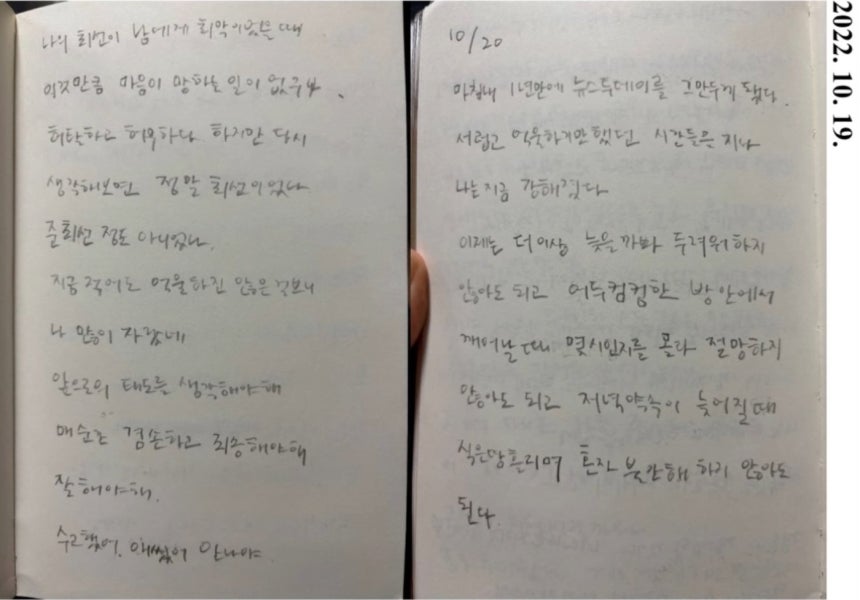 나의 최선이 남에게 최악이었을 때
이것만큼 마음이 망하는 일이 없구나.
허탈하고 허무하다 하지만 다시
생각해보면 정말 최선이었나
준최선 정도 아니었나.
지금 적어도 억울하진 않은 걸보니
나 많이 자랐네
앞으로의 태도를 생각해야해
매순간 겸손하고 죄송해야해
잘해야해.
수고했어. 애썼어 안나야
10/20
마침내 1년만에 뉴스투데이를 그만두게 됐다.
서럽고 억울하기만했던 시간들은 지나
나는 지금 강해졌다
이제는 더이상 늦을까봐 두려워하지
않아도 되고 어두컴컴한 방안에서
깨어날 때 몇시인지를 몰라 절망하지
않아도 되고 저녁약속이 늦어질때
식은땀흘리며 혼자 불안해 하지 않아도
된다.
2022. 10. 19.